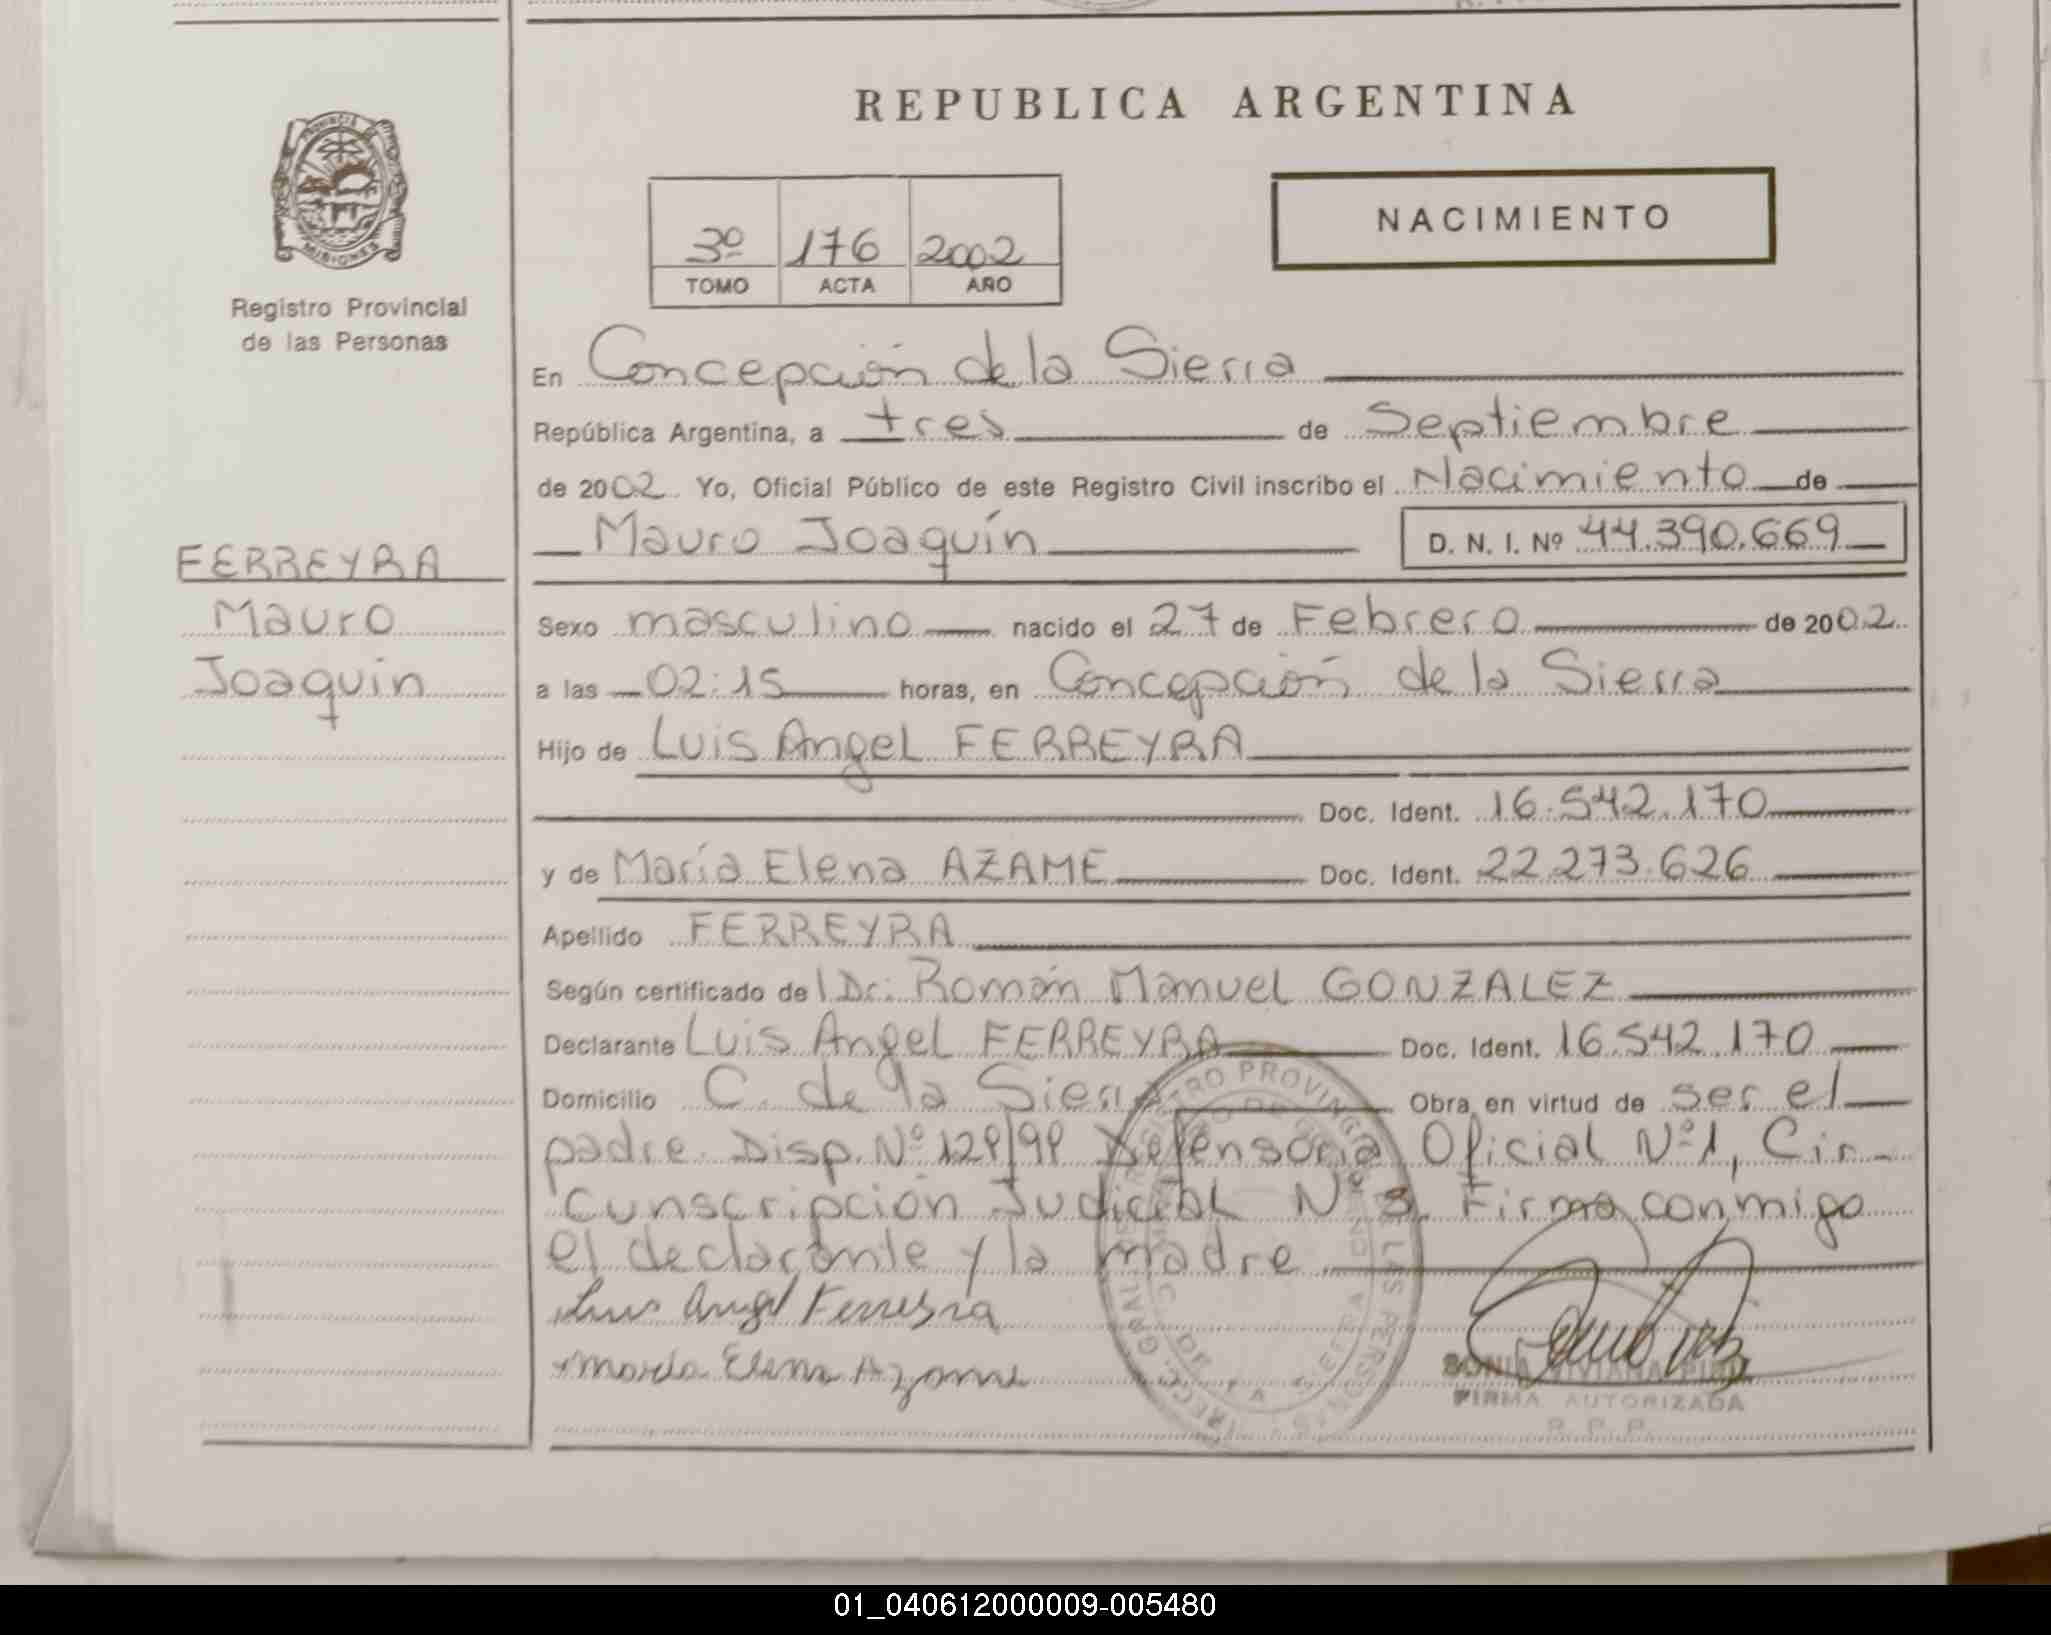 REPUBLICA ARGENTINA
PROVINCIA DE MISIONES
Registro Provincial
de las Personas
NACIMIENTO
3º 176 2002
TOMO ACTA AÑO
En Concepción de la Sierra
República Argentina, a tres de Septiembre
de 2002 Yo, Oficial Público de este Registro Civil inscribo el Nacimiento de
Mauro Joaquín D. N. I. Nº 44.390.669
FERREYRA
Mauro
Joaquin
Sexo masculino nacido el 27 de Febrero de 2002
a las 02:15 horas, en Concepción de la Sierra
Hijo de Luis Angel FERREYRA
Doc. Ident. 16.542.170
y de María Elena AZAME Doc. Ident. 22.273.626
Apellido FERREYRA
Según certificado de Dr. Román Manuel GONZALEZ
Declarante Luis Angel FERREYRA Doc. Ident. 16.542.170
Domicilio C. de la Sierra Obra en virtud de ser el
padre. Disp. Nº Defensoría Oficial Nº1, Cir-
cunscripción Judicial Nº 3. Firma conmigo
el declarante y la madre
Luis Angel Ferreyra
María Elena Azame
REGISTRO PROVINCIAL DE LAS PERSONAS
SONIA VIVIANA
FIRMA AUTORIZADA
R. P. P.
01_040612000009-005480